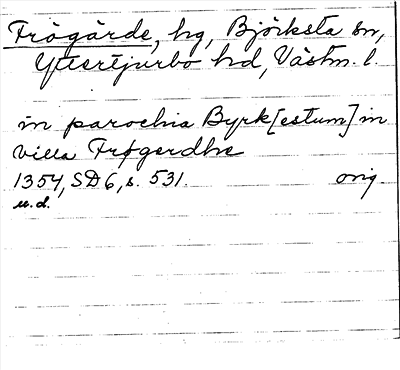 Frögärde, hg, Björksta sn,
Yttertjurbo hd, Västm. l.
in parochia Byrk[estum] in
villa Frøgerdhe
1354, SD 6, s. 531. orig.
u.d.